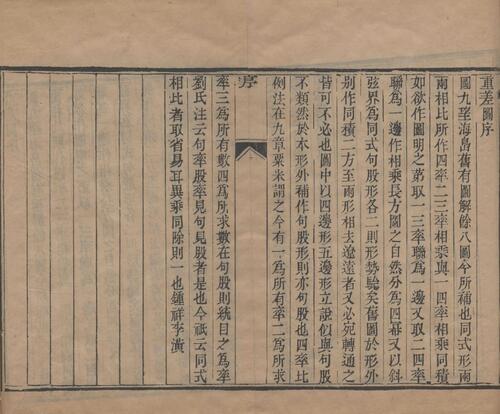 重差圖序
圖九至海島舊有圖解餘八圖今所補也同式形兩
兩相比所作四率二三率相乘與一四率相乘同積
如欲作圖明之第取一三率聯為一邊又取二四率
聯為一邊作相乘長方圖之自然分為四冪又以斜
弦界為同式句股形各二則形勢驗矣舊圖於形外
別作同積二方至兩形相去遼遠者又必宛轉通之
皆可不必也圖中以四邊形五邊形立說似與句股
不類然於本形外補作句股形則亦句股也四率比
例法在九章粟米謂之今有一為所有率二為所求
序
率三為所有數四為所求數在句股則統目之為率
劉氏注云句率股率見句見股者是也今祇云同式
相比者取省易耳異乘同除則一也鍾祥李潢